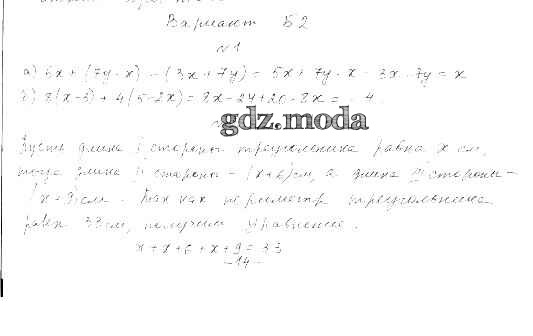 Вариант Б2
№1
а) 5х + (7у - х) - (3х + 7у) = 5х + 7у - х - 3х - 7у = х
б) 8(х-3) + 4(5-2х) = 8х - 24 + 20 - 8х = -4.
gdz.moda
Пусть длина I стороны треугольника равна х см,
тогда длина II стороны - (х+6) см, а длина III стороны -
(х+9) см. Так как периметр треугольника
равен 33 см, получим уравнение.
х + х + 6 + х + 9 = 33
-14-